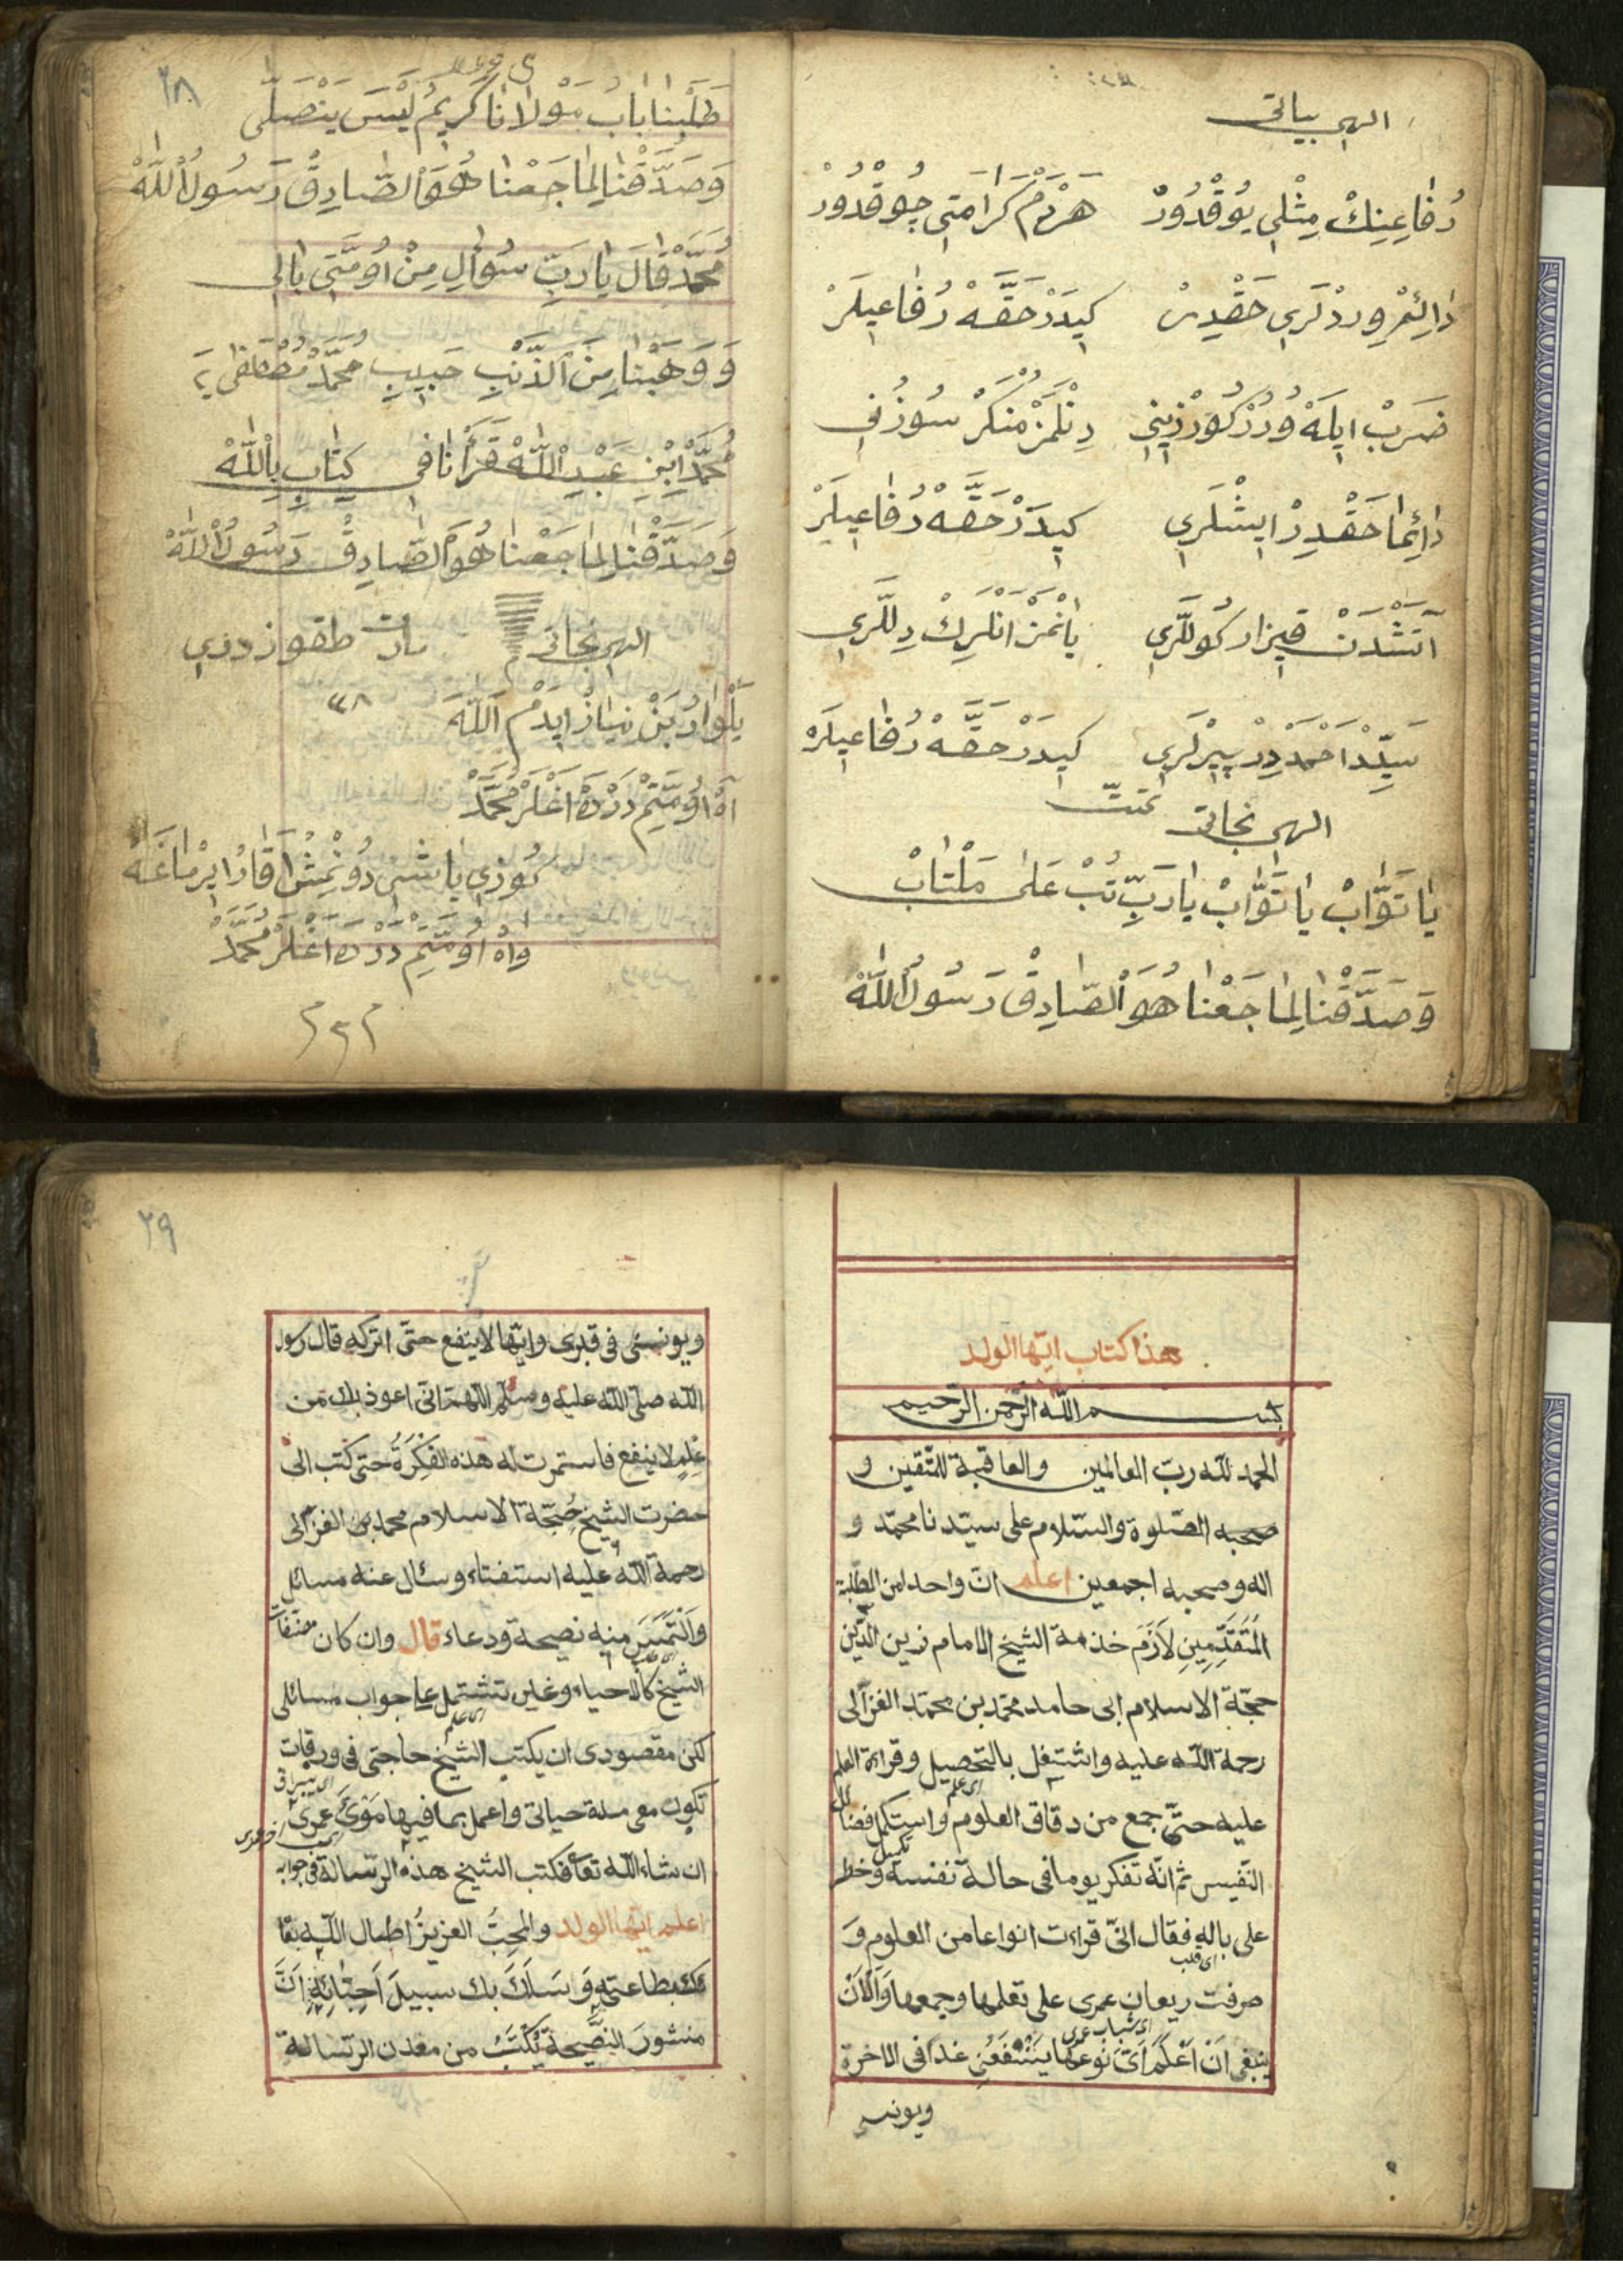 الهی بیاتی
رُفَاعِنِكْ مِثْلِي يُوقْدُورْ هَرْدَمْ كَرَامَتِي چُوقْدُورْ
دَائِمْ وِرْدْلَرِي حَقْدِرْ كِيدَرْ حَقَّهْ رُفَاعِيلَرْ
ضَرَبْ اِيلَهْ وُرُرْ كُورْزِينِي دِنْلَمَزْ مُنْكَرْ سُوزُنِي
دَائِمَا حَقْدِرْ اِيشْلَرِي كِيدَرْ حَقَّهْ رُفَاعِيلَرْ
آتَشْدَنْ قِيزَارْ كُولَّرِي يَانْمَزْ اَنْلَرِكْ دِلَّرِي
سَيِّدْ اَحْمَدْ دِرْ پِيرْلَرِي كِيدَرْ حَقَّهْ رُفَاعِيلَرْ
تمّت
الهی نجاتی
يَا تَوَّابْ يَا تَوَّابْ يَا رَبِّ تُبْ عَلَى مَنْ تَابْ
وَصَدَّقْنَا لِمَا جَعْنَا هُوَ الصَّادِقْ رَسُولُ اللّٰهْ
٢٨
طَلَبْنَا بَابُ مَوْلَانَا كَرِيمُ لَيْسَ يَنْصَلَّى
وَصَدَّقْنَا لِمَا جَعْنَا هُوَ الصَّادِقْ رَسُولُ اللّٰهْ
مُحَمَّدْ قَالَ يَا رَبِّ سُوأَلِ مِنْ اُومَّتِي بَالِي
وَوَهَبْنَا مِنَ الذَّنْبِ حَبِيبِ مُحَمَّدْ مُصْطَفَى
مُحَمَّدْ اِبْنِ عَبْدِ اللّٰهْ قَرَأْنَا فِي كِتَابِ بِاللّٰهْ
وَصَدَّقْنَا لِمَا جَعْنَا هُوَ الصَّادِقْ رَسُولُ اللّٰهْ
الهی نجاتی مارت طقوزدزی
يَلْوَارُبَنْ نِيَازْ اِيدَمْ اَللّٰهَ
آهْ اُومَّتِمْ دَرْدَهْ اَغْلَرْ مُحَمَّدْ
كُوزِي يَاشِى دُونْمِشْ اَقَارْ اِيرْمَاغَهْ
وَاهْ اُومَّتِمْ دَرْدَهْ اَغْلَرْ مُحَمَّدْ
هذا كتاب ايّها الولد
بسم اللّه الرّحمن الرّحيم
الحمد للّه ربّ العالمين والعاقبة للمتّقين و
صحبه الصّلوة والسّلام على سيّدنا محمّد و
اله وصحبه اجمعين اعلم انّ واحدا من الطّلبة
المُتَقَدِّمِينِ لَازَمَ خذمة الشيخ الامام زين الدّين
حجّة الاسلام ابى حامد محمّد بن محمّد الغزّالى
رحمة اللّه عليه واشتغل بالتحصيل وقراءة العلم
عليه حتّى جمع من دقاق العلوم واستكمل فضائل
النّفيس ثم انّه تفكر يوما فى حالة نفسه وخطر
على باله فقال انىّ قراءت انواعا من العلوم وَ
صرفت ريعان عمرى على تعلمها وجمعها وَالْآنَ
ينبغى اَنْ اَعْلَمَ اَىّ نَوعَها يَنْتَفَعُنِ غدًا فى الاخرة
ويونسى
٢٩
ويونسى فى قبرى وايّها لاينفع حتّى اتركه قال رسول
اللّه صلّى اللّه عليه وسلّم اللّهمّ انّى اعوذ بك من
عِلْمٍ لا ينفع فاستمرت له هذه الفِكْرَةُ حتى كتب الى
حضرت الشيخ حُجّجة الاسلام محمد بن الغزّالى
رحمة اللّه عليه استفتاء وسئال عنه مسائل
وَالْتَمَيَسَ منه نصيحة ودعاء قال وان كان مصنفات
الشيخ كالاحياء وغيره تشتمل على جواب مسائلى
لكن مقصودى ان يكتب الشيخ حاجتى فى ورقات
تكون معى مدة حياتى واعمل بما فيها مَدىَ عمرى
ان شاء اللّه تعا فكتب الشيخ هذه الرّسالة فى جوابه
اعلم ايّها الولد والمحِبُّ العزيزُ اطال اللّه بقا
ئك بطاعته وَسَلَكَ بك سبيلَ اَحِبّائِهِ اَنَّ
منشورَ النصَّيحة يُكْتَبُ من معدن الرّسالة